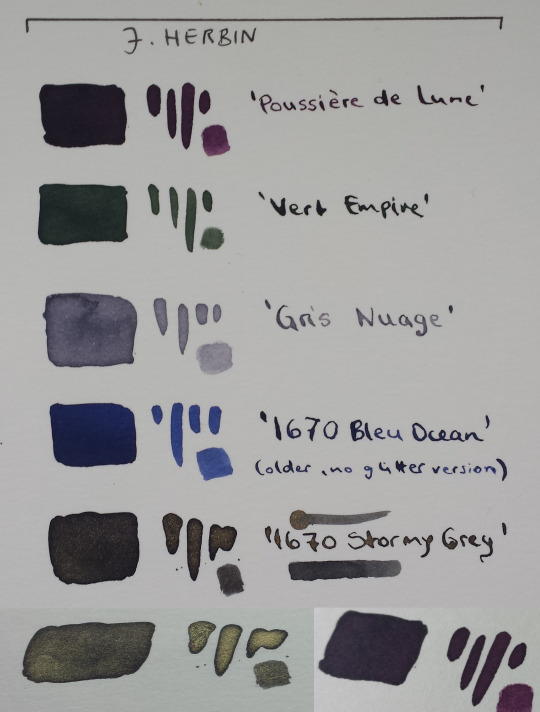 J. HERBIN
'Poussière de Lune'
'Vert Empire'
'Gris Nuage'
'1670 Bleu Ocean'
(older, no glitter version)
'1670 Stormy Grey'